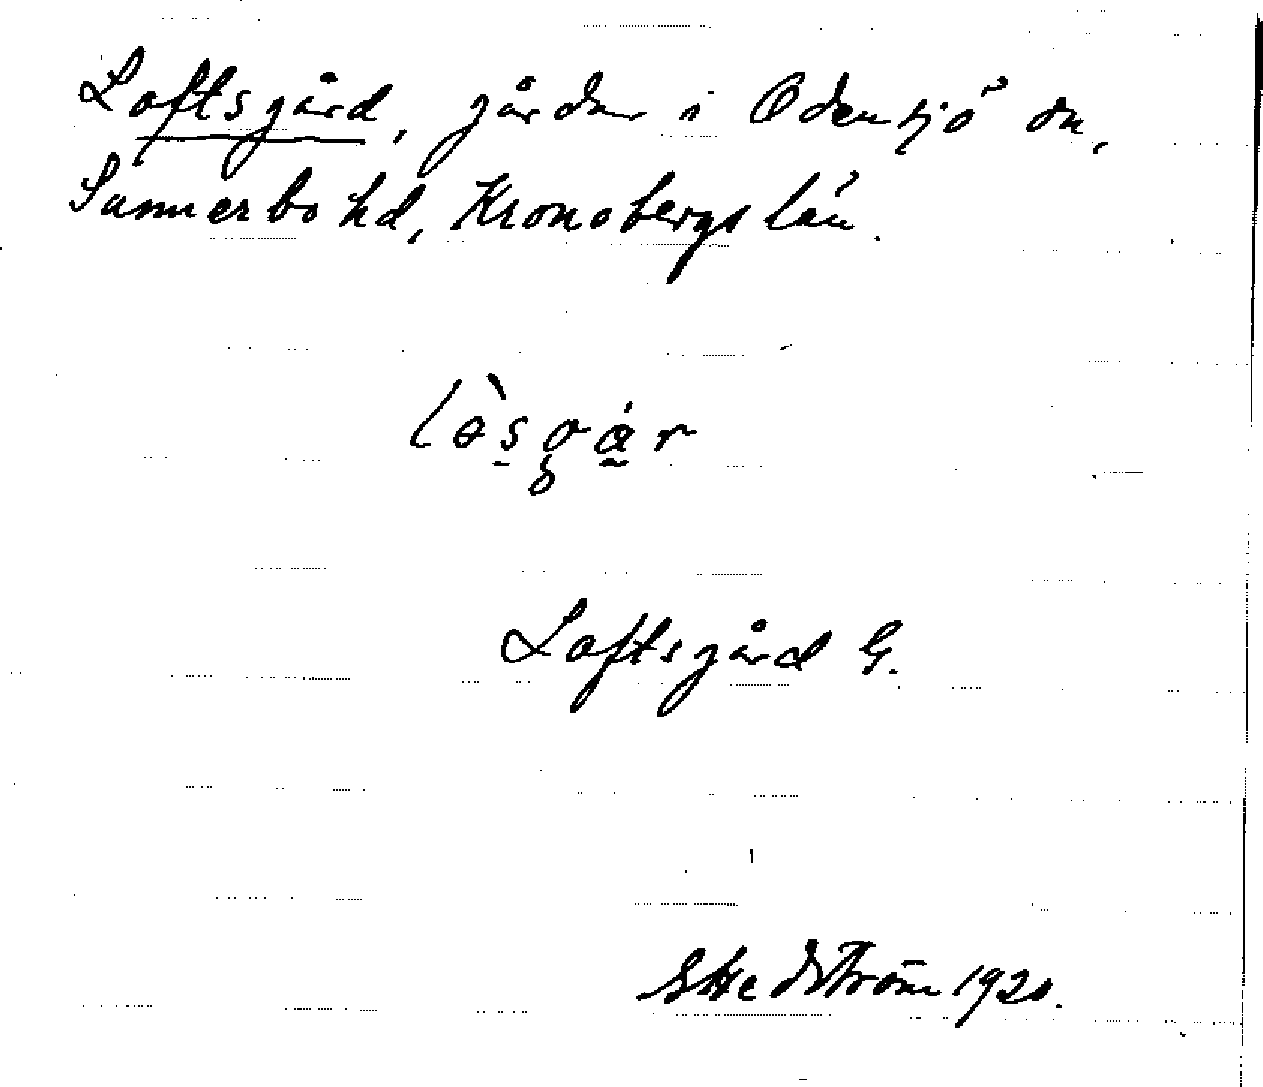 Loftsgård, gårdar i Odensjö sn,
Sunnerbo hd, Kronobergs län.
Loftsgård G.
G Hedström 1920.